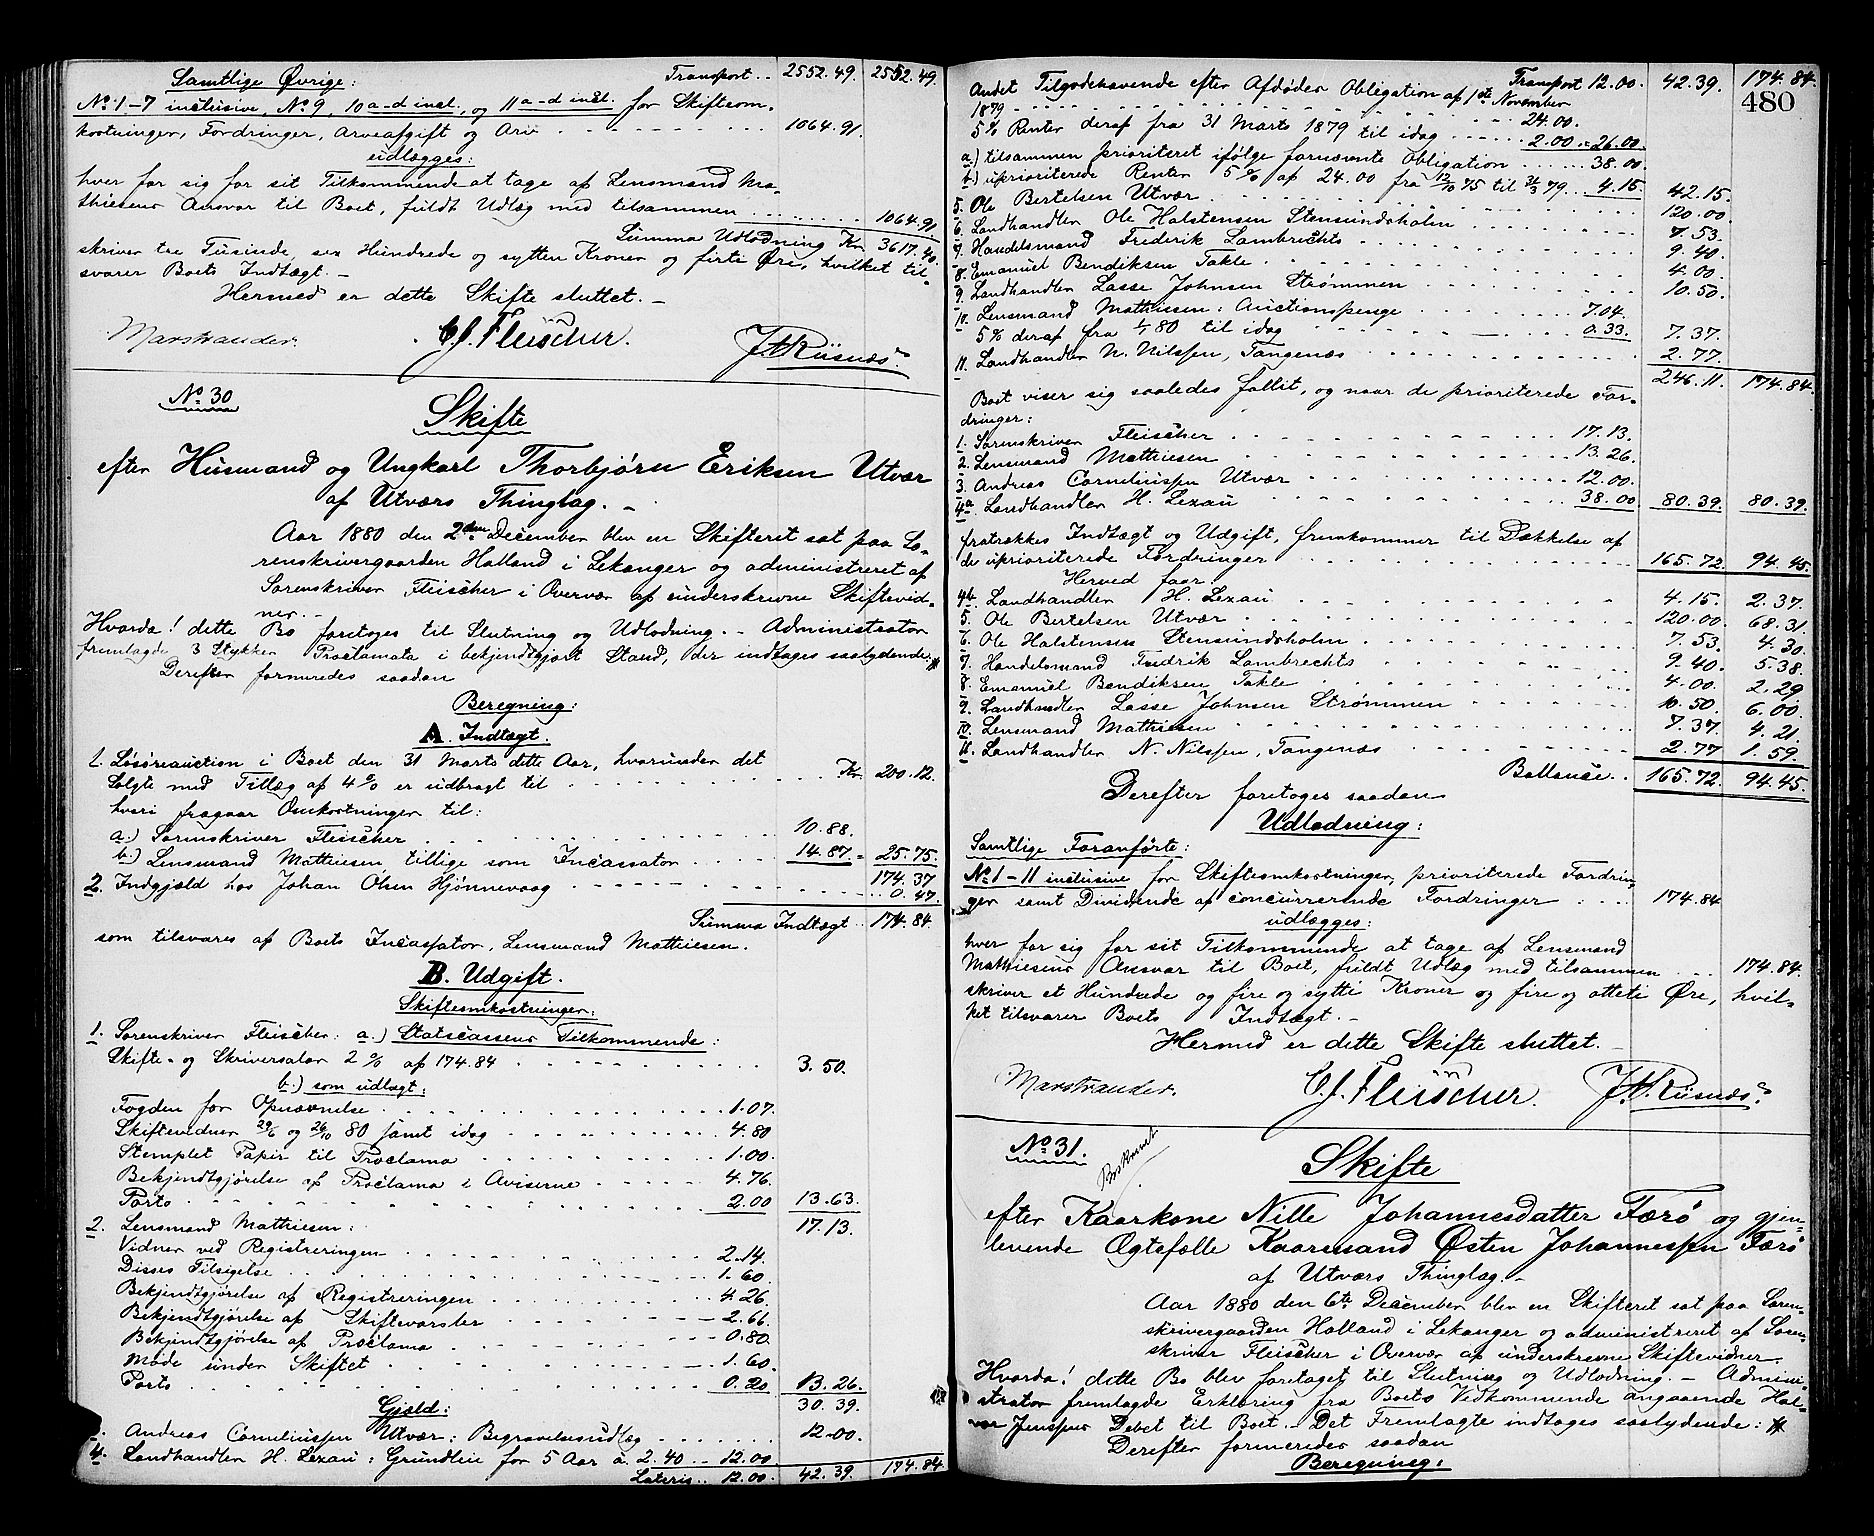 Samtlige Øvrige: Transport .. 2552.49. 2552.49.
No 1-7 inclusive, No 9, 10 a-d incl., og 11 a-d incl. for Skifteom-
kostninger, Fordringer, Arveafgift og Arv 1064.91.
udlægges:
hver for sig for sit Tilkommende at tage af Lensmand Ma-
thiesens Ansvar til Boet, fuldt Udlæg med tilsammen 1064.91
Summa Udlodning Kr. 3617.40
skriver tre Tusinde sex Hundrede og sytten Kroner og firti Øre, hvilket til-
svarer Boets Indtægt. -
Hermed er dette Skifte sluttet. -
Marstrander. C. J. Fleischer. J. A. Riisnæs.
No 30
Skifte
efter Husmand og Ungkarl Thorbjørn Eriksen Utvær
af Utværs Thinglag. -
Aar 1880 den 2den December blev en Skifteret sat paa So-
renskrivergaarden Holland i Lekanger og administreret af
Sorenskriver Fleischer i Overvær af underskrevne Skiftevid-
ner. -
Hvorda! dette Bo foretoges til Slutning og Udlodning. - Administrator
fremlagde 3 Stykker Proclamata i bekjendtgjort Stand, der indtages saalydende:
Derefter formeredes saadan
Beregning:
A. Indtægt.
1. Løsøreauction i Boet den 31 Marts dette Aar, hvorunder det
Solgte med Tillæg af 4 % er udbragt til Kr. 200.12.
hvori fragaar Omkostninger til:
a.) Sorenskriver Fleischer 10.88.
b.) Lensmand Mathiesen tillige som Incassator 14.87 = 25.75.
174.37
2. Indgjæld hos Johan Olsen Hjønnevaag 0.47.
Summa Indtægt .. 174.84.
som tilsvares af Boets Incassator, Lensmand Mathiesen.
B. Udgift.
Skifteomkostninger:
1. Sorenskriver Fleischer: a.) Statscassens Tilkommende:
Skifte- og Skriversalær 2 % af 174.84 3.50.
b.) som udlagt:
Fogden for Opnævnelse 1.07.
Skiftevidner 29/6 og 26/10 80 samt idag 4.80
Stemplet Papir til Proclama 1.00.
Bekjendtgjørelse af Proclama i Aviserne 4.76.
Porto 2.00 13.63.
17.13.
2. Lensmand Mathiesen:
Vidner ved Registreringen 2.14.
Disses Tilsigelse 1.60.
Bekjendtgjørelse af Registreringen 4.26
Bekjendtgjørelse af Skiftevarsler 2.66.
Bekjendtgjørelse af Proclama 0.80.
Møde under Skiftet 1.60.
Porto 0.20 13.26.
30.39.
Gjæld:
Andreas Corneliussen Utvær: Begravelsesudlæg 12.00.
4. Landhandler H. Lexau: Grundleie for 5 Aar a 2.40 12.00
Lateris .. 12.00. 42.39. 174.84
480
Transport 12.00. 42.39. 174.84.
Andet Tilgodehavende efter Afdødes Obligation af 1ste November
1879 24.00.
5 % Renter deraf fra 31 Marts 1879 til idag 2.00 = 26.00.
a.) tilsammen prioriteret ifølge fornævnte Obligation 38.00
b.) uprioriterede Renter 5 % af 24.00 fra 12/10 75 til 31/3 79 4.15. 42.15.
5. Ole Bertelsen Utvær 120.00.
6. Landhandler Ole Halstensen Stensundsholm 7.53.
7. Handelsmand Frederik Lambrechts 9.40.
8. Emanuel Bendiksen Takle 4.00.
9. Landhandler Lasse Johnsen Strømmen 10.50.
10. Lensmand Mathiesen: Auctionspenge 7.04.
5 % deraf fra 1/1 80 til idag 0.33. 7.37.
11. Landhandler N. Nilssen, Tangenæs 2.77.
246.11. 174.84.
Boet viser sig saaledes fallit, og naar de prioriterede For-
dringer:
1. Sorenskriver Fleischer 17.13.
2. Lensmand Mathiesen 13.26.
3. Andreas Corneliussen Utvær 12.00.
4a Landhandler H. Lexau 38.00 80.39. 80.39.
fratrækkes Indtægt og Udgift, fremkommer til Dækkelse af
de uprioriterede Fordringer 165.72. 94.45.
Herved faar:
4b. Landhandler H. Lexau 4.15. 2.37.
5. Ole Bertelsen Utvær 120.00. 68.31
6. Ole Halstensen Stensundsholm 7.53. 4.30.
7. Handelsmand Fredrik Lambrechts 9.40. 5.38.
8. Emanuel Bendiksen Takle 4.00. 2.29
9. Landhandler Lasse Johnsen Strømmen 10.50. 6.00.
10. Lensmand Mathiesen 7.37. 4.21.
11. Landhandler N. Nilssen, Tangenæs 2.77 1.59.
Ballance .. 165.72. 94.45.
Derefter foretoges saadan
Udlodning:
Samtlige Foranførte:
No 1-11 inclusive for Skifteomkostninger, prioriterede Fordrin-
ger samt Dividende af concurrerende Fordringer 174.84
udlægges:
hver for sig for sit Tilkommende at tage af Lensmand
Mathiesens Ansvar til Boet, fuldt Udlæg med tilsammen 174.84.
skriver et Hundrede og fire og sytti Kroner og fire og otteti Øre, hvil-
ket tilsvarer Boets Indtægt. -
Hermed er dette Skifte sluttet. -
Marstrander. C. J. Fleischer. J. A. Riisnæs.
No 31.
Skifte
efter Kaarkone Nille Johannesdatter Færø og gjen-
levende Ægtefælle Kaarmand Østen Johannessen Færø
af Utværs Thinglag. -
Aar 1880 den 6te December blev en Skifteret sat paa Soren-
skrivergaarden Holland i Lekanger og administreret af Soren-
skriver Fleischer i Overvær af underskrevne Skiftevidner.
Hvorda! dette Bo blev foretaget til Slutning og Udlodning. - Admini-
strator fremlagde Erklæring fra Boets Vidkommende angaaende Hal-
vor Jenssens Debet til Boet. Det Fremlagte indtages saalydende:
Derefter formeredes saadan
Beregning: